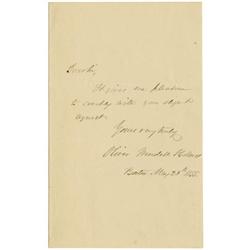 Dear Sir,
It gives me pleasure
to comply with your
request.
Yours very truly,
Oliver Wendell Holmes
Boston May 25th